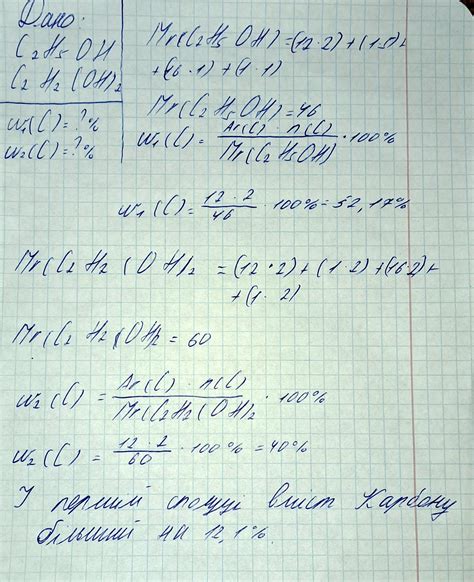 Дано:
C₂H₅OH
C₂H₂(OH)₂
w₁(C)=?%
w₂(C)=?%
Mr(C₂H₅OH)=(12·2)+(1·5)+
+(16·1)+(1·1)
Mr(C₂H₅OH)=46
w₁(C)=Ar(C)·n(C)/Mr(C₂H₅OH)·100%
w₁(C)=12·2/46·100%=52,17%
Mr(C₂H₂(OH)₂=(12·2)+(1·2)+(16·2)+
+(1·2)
Mr(C₂H₂(OH)₂=60
w₂(C)=Ar(C)·n(C)/Mr(C₂H₂(OH)₂·100%
w₂(C)=12·2/60·100%=40%
У першій сполуці вміст Карбону
більший на 12,1%.